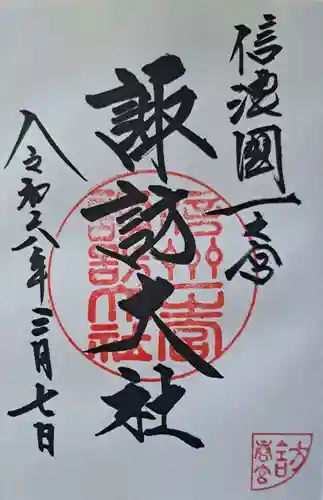 信濃國一之宮
諏訪大社
令和六年三月七日
信州一之宮
諏訪大社